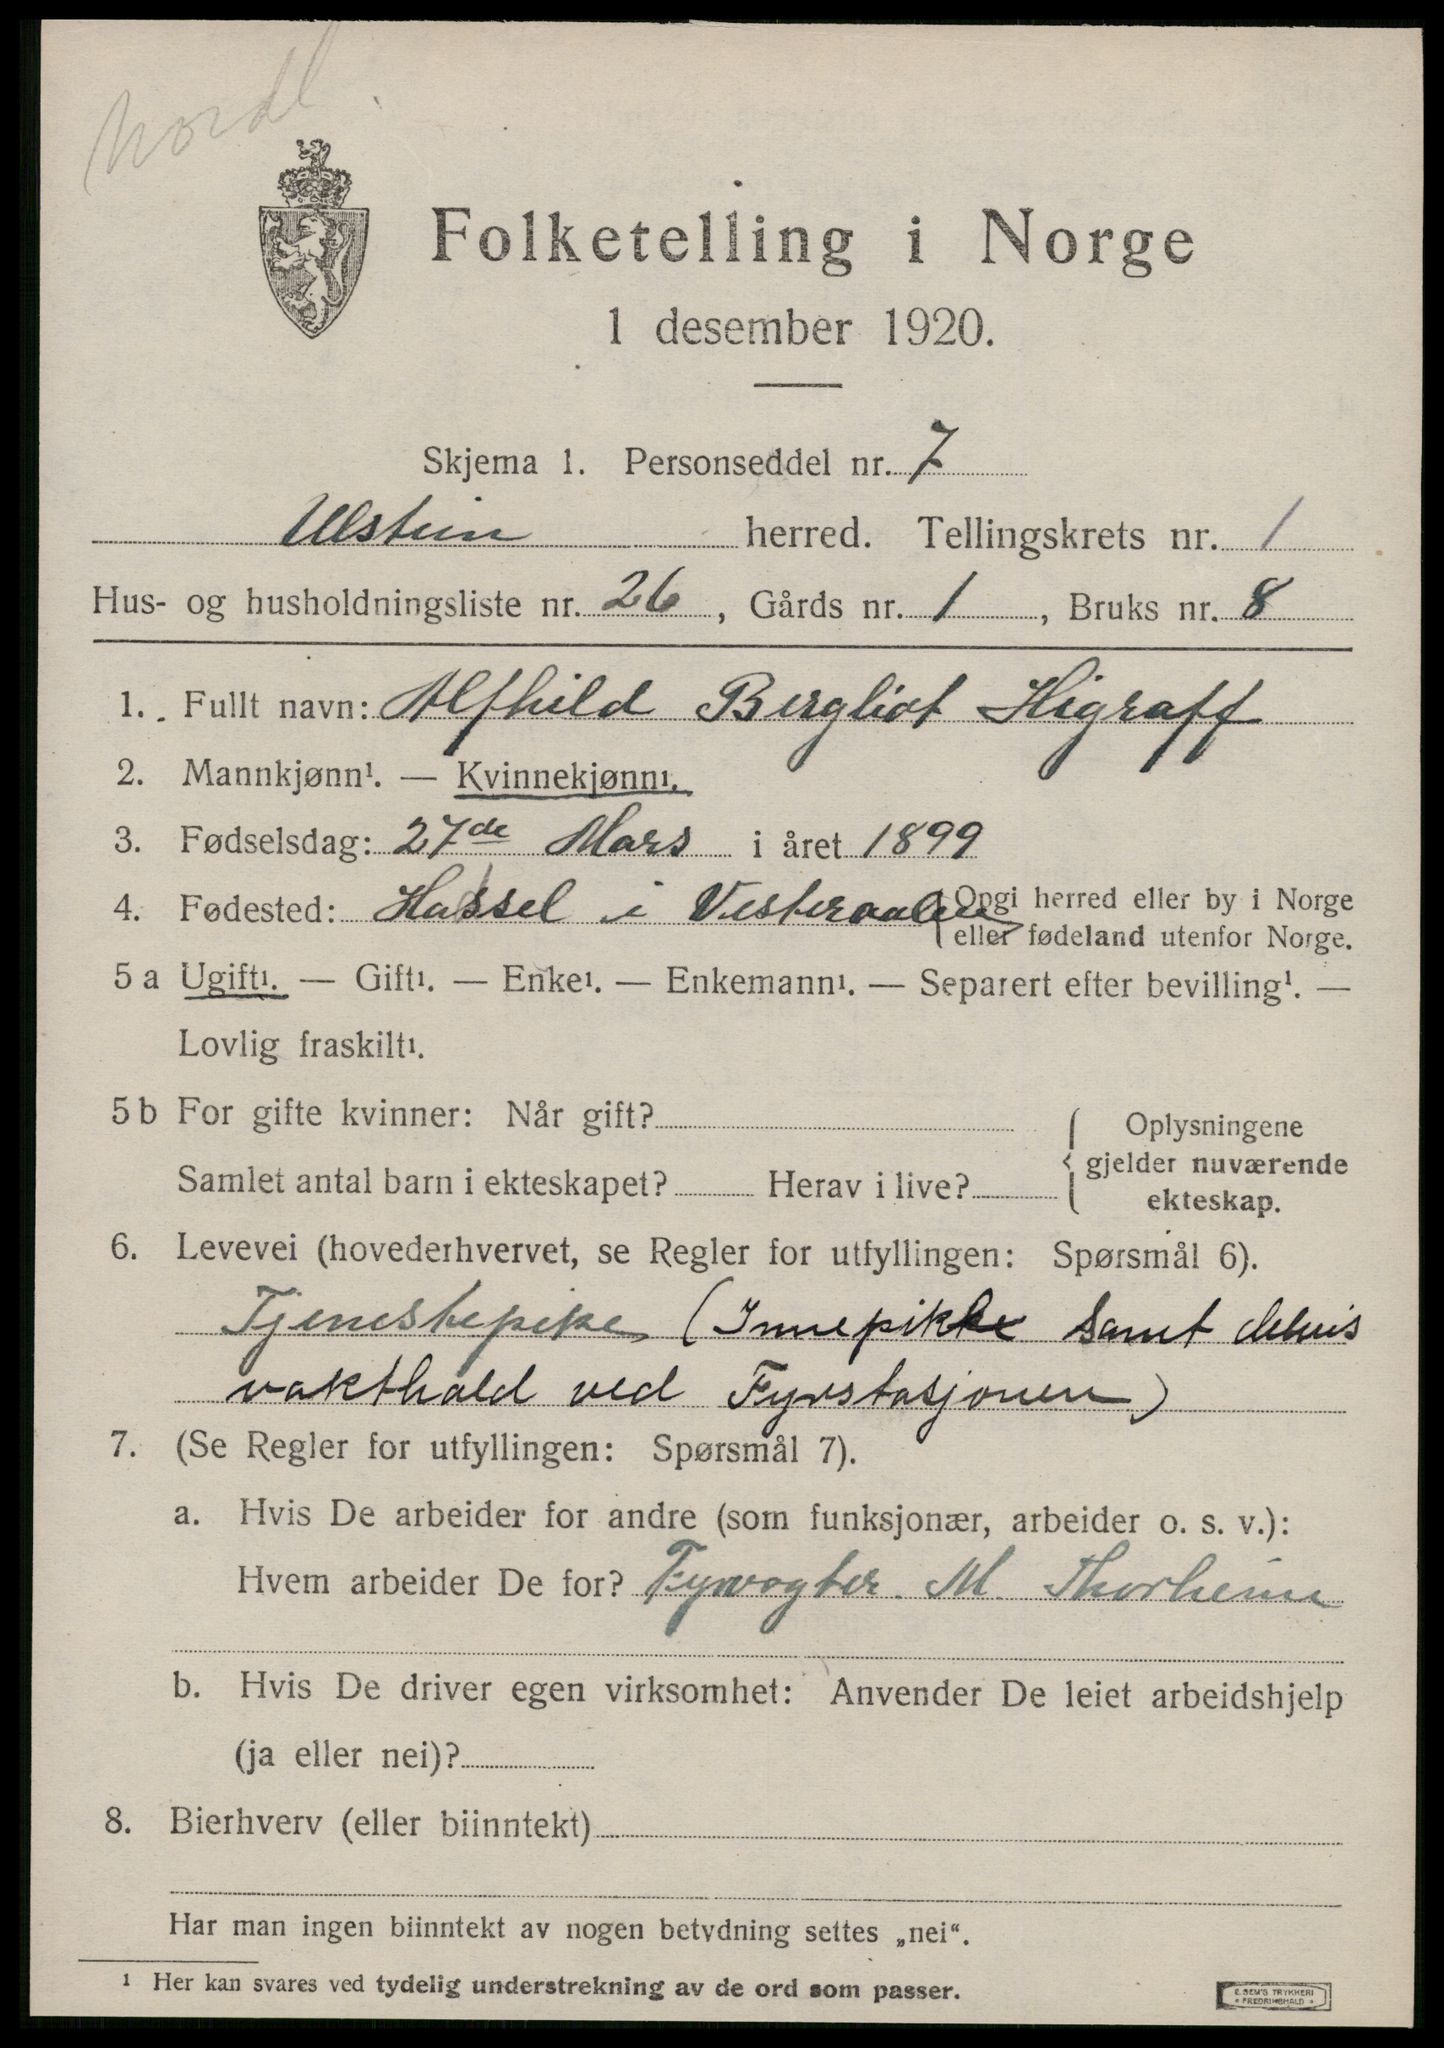 Nordl.
Folketelling i Norge
1 desember 1920.
Skjema 1. Personseddel nr. 7
Ulstein herred. Tellingskrets nr. 1
Hus- og husholdningsliste nr. 26, Gårds nr. 1, Bruks nr. 8
1. Fullt navn: Alfhild Bergliot Higraff
2. Mannkjønn¹. — Kvinnekjønn¹.
3. Fødselsdag: 27de Mars i året 1899
4. Fødested: Hassel i Vesteraalen { Opgi herred eller by i Norge
eller fødeland utenfor Norge.
5 a Ugift¹. — Gift¹. — Enke¹. — Enkemann¹. — Separert efter bevilling¹. —
Lovlig fraskilt¹.
5 b For gifte kvinner: Når gift?
Samlet antal barn i ekteskapet? Herav i live?
{ Oplysningene
gjelder nuværende
ekteskap.
6. Levevei (hovederhvervet, se Regler for utfyllingen: Spørsmål 6).
Tjenestepike (Innepikke samt delvis
vakthald ved Fyrstasjonen)
7. (Se Regler for utfyllingen: Spørsmål 7).
a. Hvis De arbeider for andre (som funksjonær, arbeider o. s. v.):
Hvem arbeider De for? Fyrvogter M. Thorheim
b. Hvis De driver egen virksomhet: Anvender De leiet arbeidshjelp
(ja eller nei)?
8. Bierhverv (eller biinntekt)
Har man ingen biinntekt av nogen betydning settes „nei“.
¹ Her kan svares ved tydelig understrekning av de ord som passer.
E. SEM'S TRYKKERI
FREDRIKSHALD